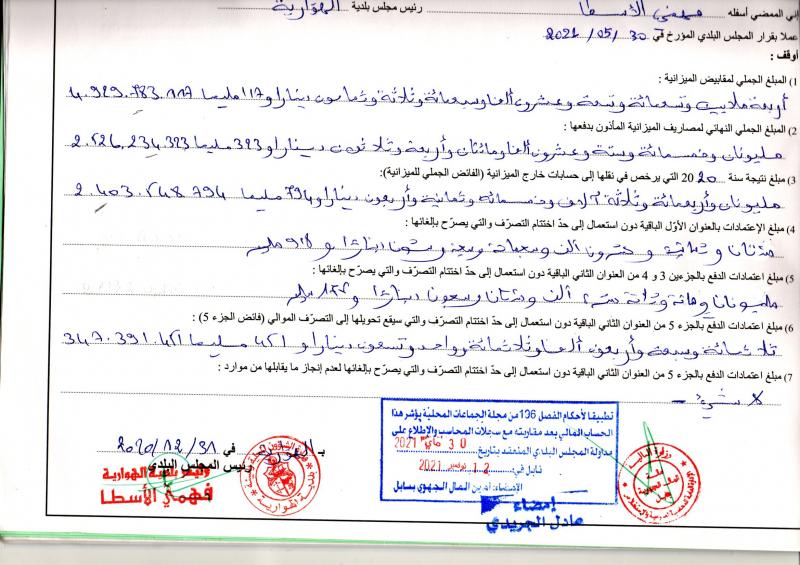 إني الممضي أسفله فهمي الأسطا رئيس مجلس بلدية الهوارية
عملا بقرار المجلس البلدي المؤرخ في 30 /05/ 2021
أوقف :
1) المبلغ الجملي لمقابيض الميزانية :
أربعة ملايين وتسعمائة وتسعة وعشرون ألفا وسبعمائة وثلاثة وثمانون دينارا و117 مليما 4.929.783.117
2) المبلغ الجملي النهائي لمصاريف الميزانية المأذون بدفعها :
مليونان وخمسمائة وستة وعشرون ألفا ومائتان وأربعة وثلاثون دينارا و323 مليما 2.526.234.323
3) مبلغ نتيجة سنة 2020 التي يرخص في نقلها إلى حسابات خارج الميزانية (الفائض الجملي للميزانية):
مليونان وأربعمائة وثلاثة آلاف وخمسمائة وثمانية وأربعون دينارا و794 مليما 2.403.548.794
4) مبلغ الإعتمادات بالعنوان الأوّل الباقية دون استعمال إلى حدّ اختتام التصرّف والتي يصرّح بإلغائها:
مائتان و ثمانية و عشرون ألف و سبعمائة و دينارا و 918 مليم
5) مبلغ اعتمادات الدفع بالجزءين 3 و 4 من العنوان الثاني الباقية دون استعمال إلى حدّ اختتام التصرّف والتي يصرّح بإلغائها:
مليونان و مائة و ألف و مائتان و سبعون دينارا و مليم
6) مبلغ اعتمادات الدفع بالجزء 5 من العنوان الثاني الباقية دون استعمال إلى حدّ اختتام التصرّف والتي سيقع تحويلها إلى التصرّف الموالي (فائض الجزء 5):
ثلاثمائة وسبعة وأربعون ألفا وثلاثمائة وواحد وتسعون دينارا و 421 مليما 347.391.421
7) مبلغ اعتمادات الدفع بالجزء 5 من العنوان الثاني الباقية دون استعمال إلى حدّ اختتام التصرّف والتي يصرّح بإلغائها لعدم إنجاز ما يقابلها من موارد :
لا شيء
تطبيقا لأحكام الفصل 196 من مجلة الجماعات المحلية يؤشر هذا
الحساب المالي بعد مقارنته مع سجلات المحاسب والإطلاع على
مداولة المجلس البلدي المنعقد بتاريخ 30 ماي 2021
نابل في 12 نوفمبر 2021
الإمضاء: أمين المال الجهوي بنابل
بـ الهوارية في 2020/12/31
رئيس المجلس البلدي
رئيس بلدية الهوارية
فهمي الأسطا
بلدية الهوارية
وزارة المالية
إمضاء
عادل الجريدي